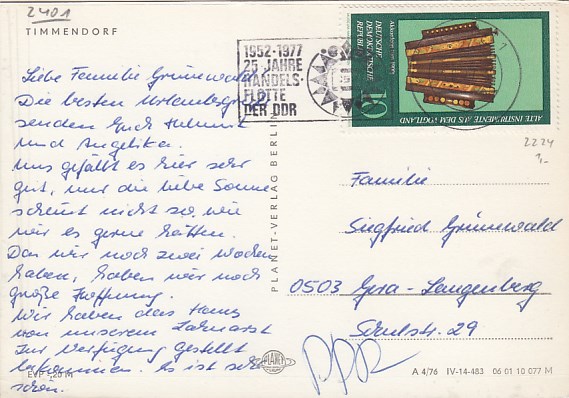 2401
TIMMENDORF
1952-1977
25 JAHRE
HANDELS-
FLOTTE
DER DDR
DEUTSCHE
DEMOKRATISCHE
REPUBLIK
10
ALTE INSTRUMENTE AUS DEM VOGTLAND
Liebe Familie Grünwald
Die besten Urlaubsgrüße
senden Euch Helmut
und Angelika.
Uns gefällt es hier sehr
gut, nur die liebe Sonne
scheint nicht so, wie
wir es gerne hätten.
Da wir noch zwei Wochen
haben, haben wir noch
große Hoffnung.
Wir haben das Haus
von unserem Zahnarzt
zur Verfügung gestellt
bekommen. Es ist sehr
schön.
EVP -,20 M
PLANET-VERLAG BERLIN
PLANET
2224
1,-
Familie
Siegfried Grünwald
6503 Gera-Langenberg
Schulstr. 29
DDR
A 4/76 IV-14-483 06 01 10 077 M